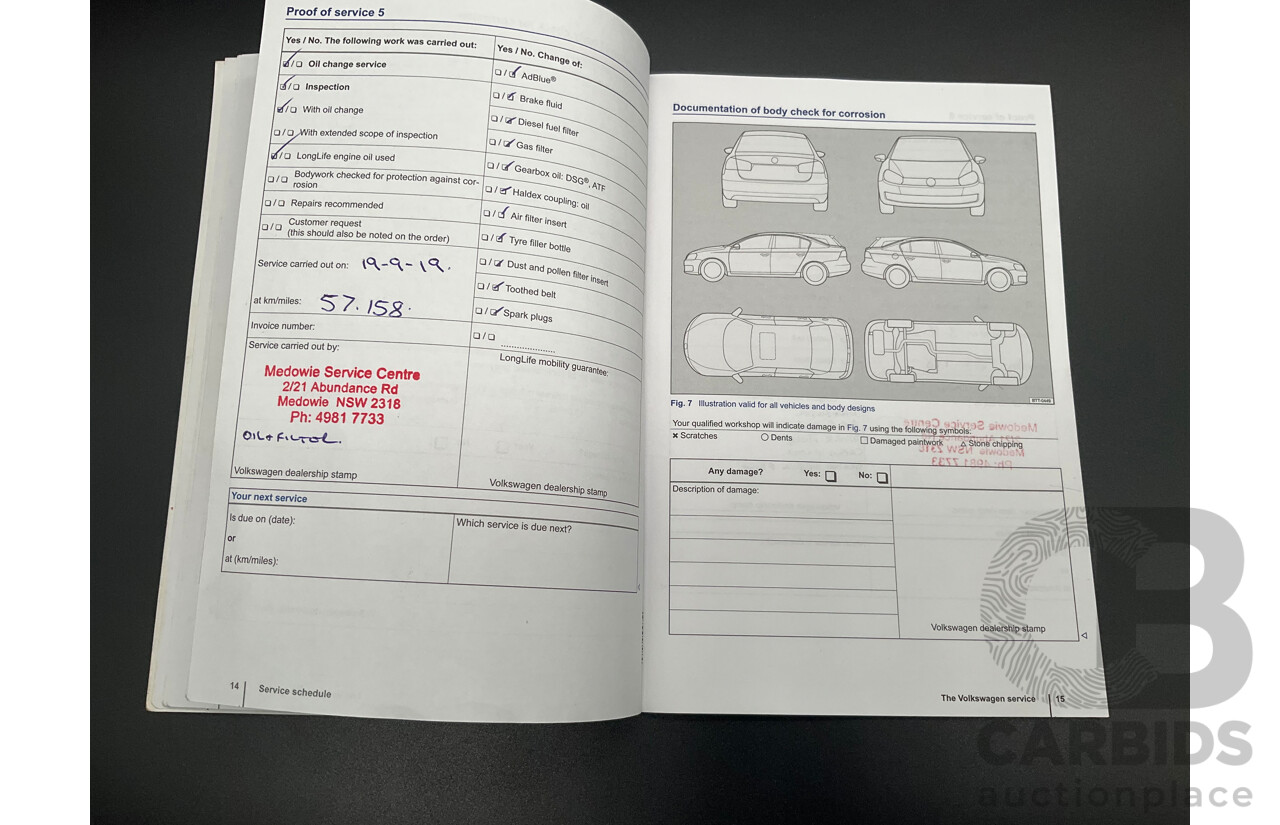 Proof of service 5
Yes / No. The following work was carried out:
❑/❑ Oil change service
❑/❑ Inspection
❑/❑ With oil change
❑/❑ With extended scope of inspection
❑/❑ LongLife engine oil used
❑/❑ Bodywork checked for protection against cor-
rosion
❑/❑ Repairs recommended
❑/❑ Customer request
(this should also be noted on the order)
Service carried out on: 19-9-19.
at km/miles: 57.158.
Invoice number:
Service carried out by:
Medowie Service Centre
2/21 Abundance Rd
Medowie NSW 2318
Ph: 4981 7733
OIL + FILTER.
Volkswagen dealership stamp
Yes / No. Change of:
❑/❑ AdBlue®
❑/❑ Brake fluid
❑/❑ Diesel fuel filter
❑/❑ Gas filter
❑/❑ Gearbox oil: DSG®, ATF
❑/❑ Haldex coupling: oil
❑/❑ Air filter insert
❑/❑ Tyre filler bottle
❑/❑ Dust and pollen filter insert
❑/❑ Toothed belt
❑/❑ Spark plugs
❑/❑ ....................
LongLife mobility guarantee:
Volkswagen dealership stamp
Your next service
Is due on (date):
or
at (km/miles):
Which service is due next?
14 Service schedule
Documentation of body check for corrosion
B7T-0449
Fig. 7 Illustration valid for all vehicles and body designs
Your qualified workshop will indicate damage in Fig. 7 using the following symbols:
× Scratches ○ Dents □ Damaged paintwork △ Stone chipping
Any damage? Yes: ❑ No: ❑
Description of damage:
Volkswagen dealership stamp
The Volkswagen service 15
CB
CARBIDS
auctionplace